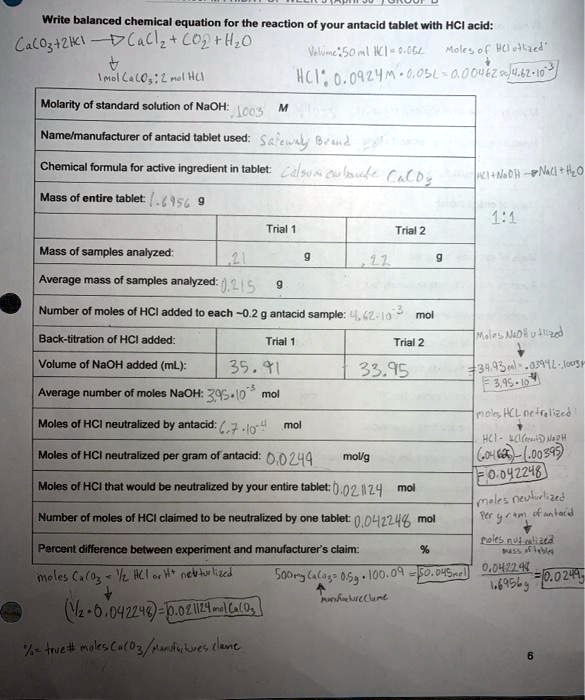 Write balanced chemical equation for the reaction of your antacid tablet with HCl acid:
CaCO3+2HCl → CaCl2 + CO2 + H2O
Volume: 50 ml HCl = 0.05L
Moles of HCl utilized
1 mol CaCO3 : 2 mol HCl
HCl: 0.0924M • 0.05L = 0.00462 4.62•10-3
Molarity of standard solution of NaOH: .1003 M
Name/manufacturer of antacid tablet used: Safeway Brand
Chemical formula for active ingredient in tablet: CaCO3
HCl+NaOH → NaCl+H2O
Mass of entire tablet: 1.6956 g
1:1
Trial 1 Trial 2
Mass of samples analyzed: .21 g .22 g
Average mass of samples analyzed: 0.215 g
Number of moles of HCl added to each ~0.2 g antacid sample: 4.62•10-3 mol
Back-titration of HCl added: Trial 1 Trial 2
Moles NaOH utilized
Volume of NaOH added (mL): 35.91 33.95
Average number of moles NaOH: 3.95•10-3 mol
Moles of HCl neutralized by antacid: 6.7•10-4 mol
Moles of HCl neutralized per gram of antacid: 0.0249 mol/g
= 0.042248
Moles of HCl that would be neutralized by your entire tablet: 0.021124 mol
Number of moles of HCl claimed to be neutralized by one tablet: 0.042248 mol
moles neutralized
per gram of antacid
Percent difference between experiment and manufacturer's claim: %
moles neutralized
mass of tablet
moles CaCO3 = 1/2 HCl or H+ neutralized
500mg CaCO3 = 0.5g • 100.09 = 50.045mol
0.042248
1.6956g = 0.0249
(1/2 • 0.042248) = 0.021124 mol CaCO3
% = true # moles CaCO3 /
6